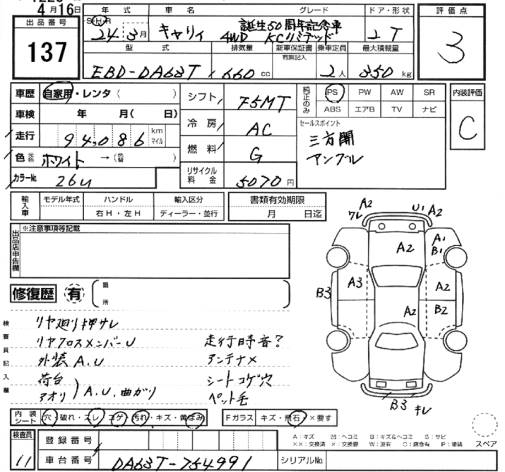 4月16日
出品番号
137
年式 グレード ドア・形状
24.3月 キャリィ 誕生50周年記念車
4WD KCパデッド 2T
型式 排気量 新車保証書 乗車定員 最大積載量
有無記入
EBD-DA63T × 660 cc 2人 350 kg
評価点
3
車歴 自家用・レンタ( )
シフト F5MT
純正のみ PS PW AW SR
ABS エアB TV ナビ
内装評価
C
車検 年 月( 日)
冷房 AC
セールスポイント
三方開
アングル
走行 94,086 km マイル
燃料 G
色 ホワイト →( )
リサイクル料金 5070円
カラーNo. 26U
輸入車 モデル年式 ハンドル 輸入区分
右H・左H ディーラー・並行
書類有効期限
月 日迄
出品店申告欄
※注意事項等記載
修復歴 有
箇所
検査員記入欄
リヤ廻り押サレ
リヤクロスメンバーU 走行時音?
外装A.U アンテナ×
荷台 シートコゲ穴
アオリ A.U.曲がり ペット毛
A2 U1 A2
ワレ
A2 A1
B1
B3 A3 A2 A2
A2 B2
B3 キレ
内装シート 穴・破れ・スレ・コゲ・汚れ・キズ・黄ばみ
Fガラス キズ・飛石・×要す
スペア
検査員
11
登録番号
車台番号 DA63T-754991
シリアルNo.
A:キズ M:ヘコミ B:キズ&ヘコミ S:サビ